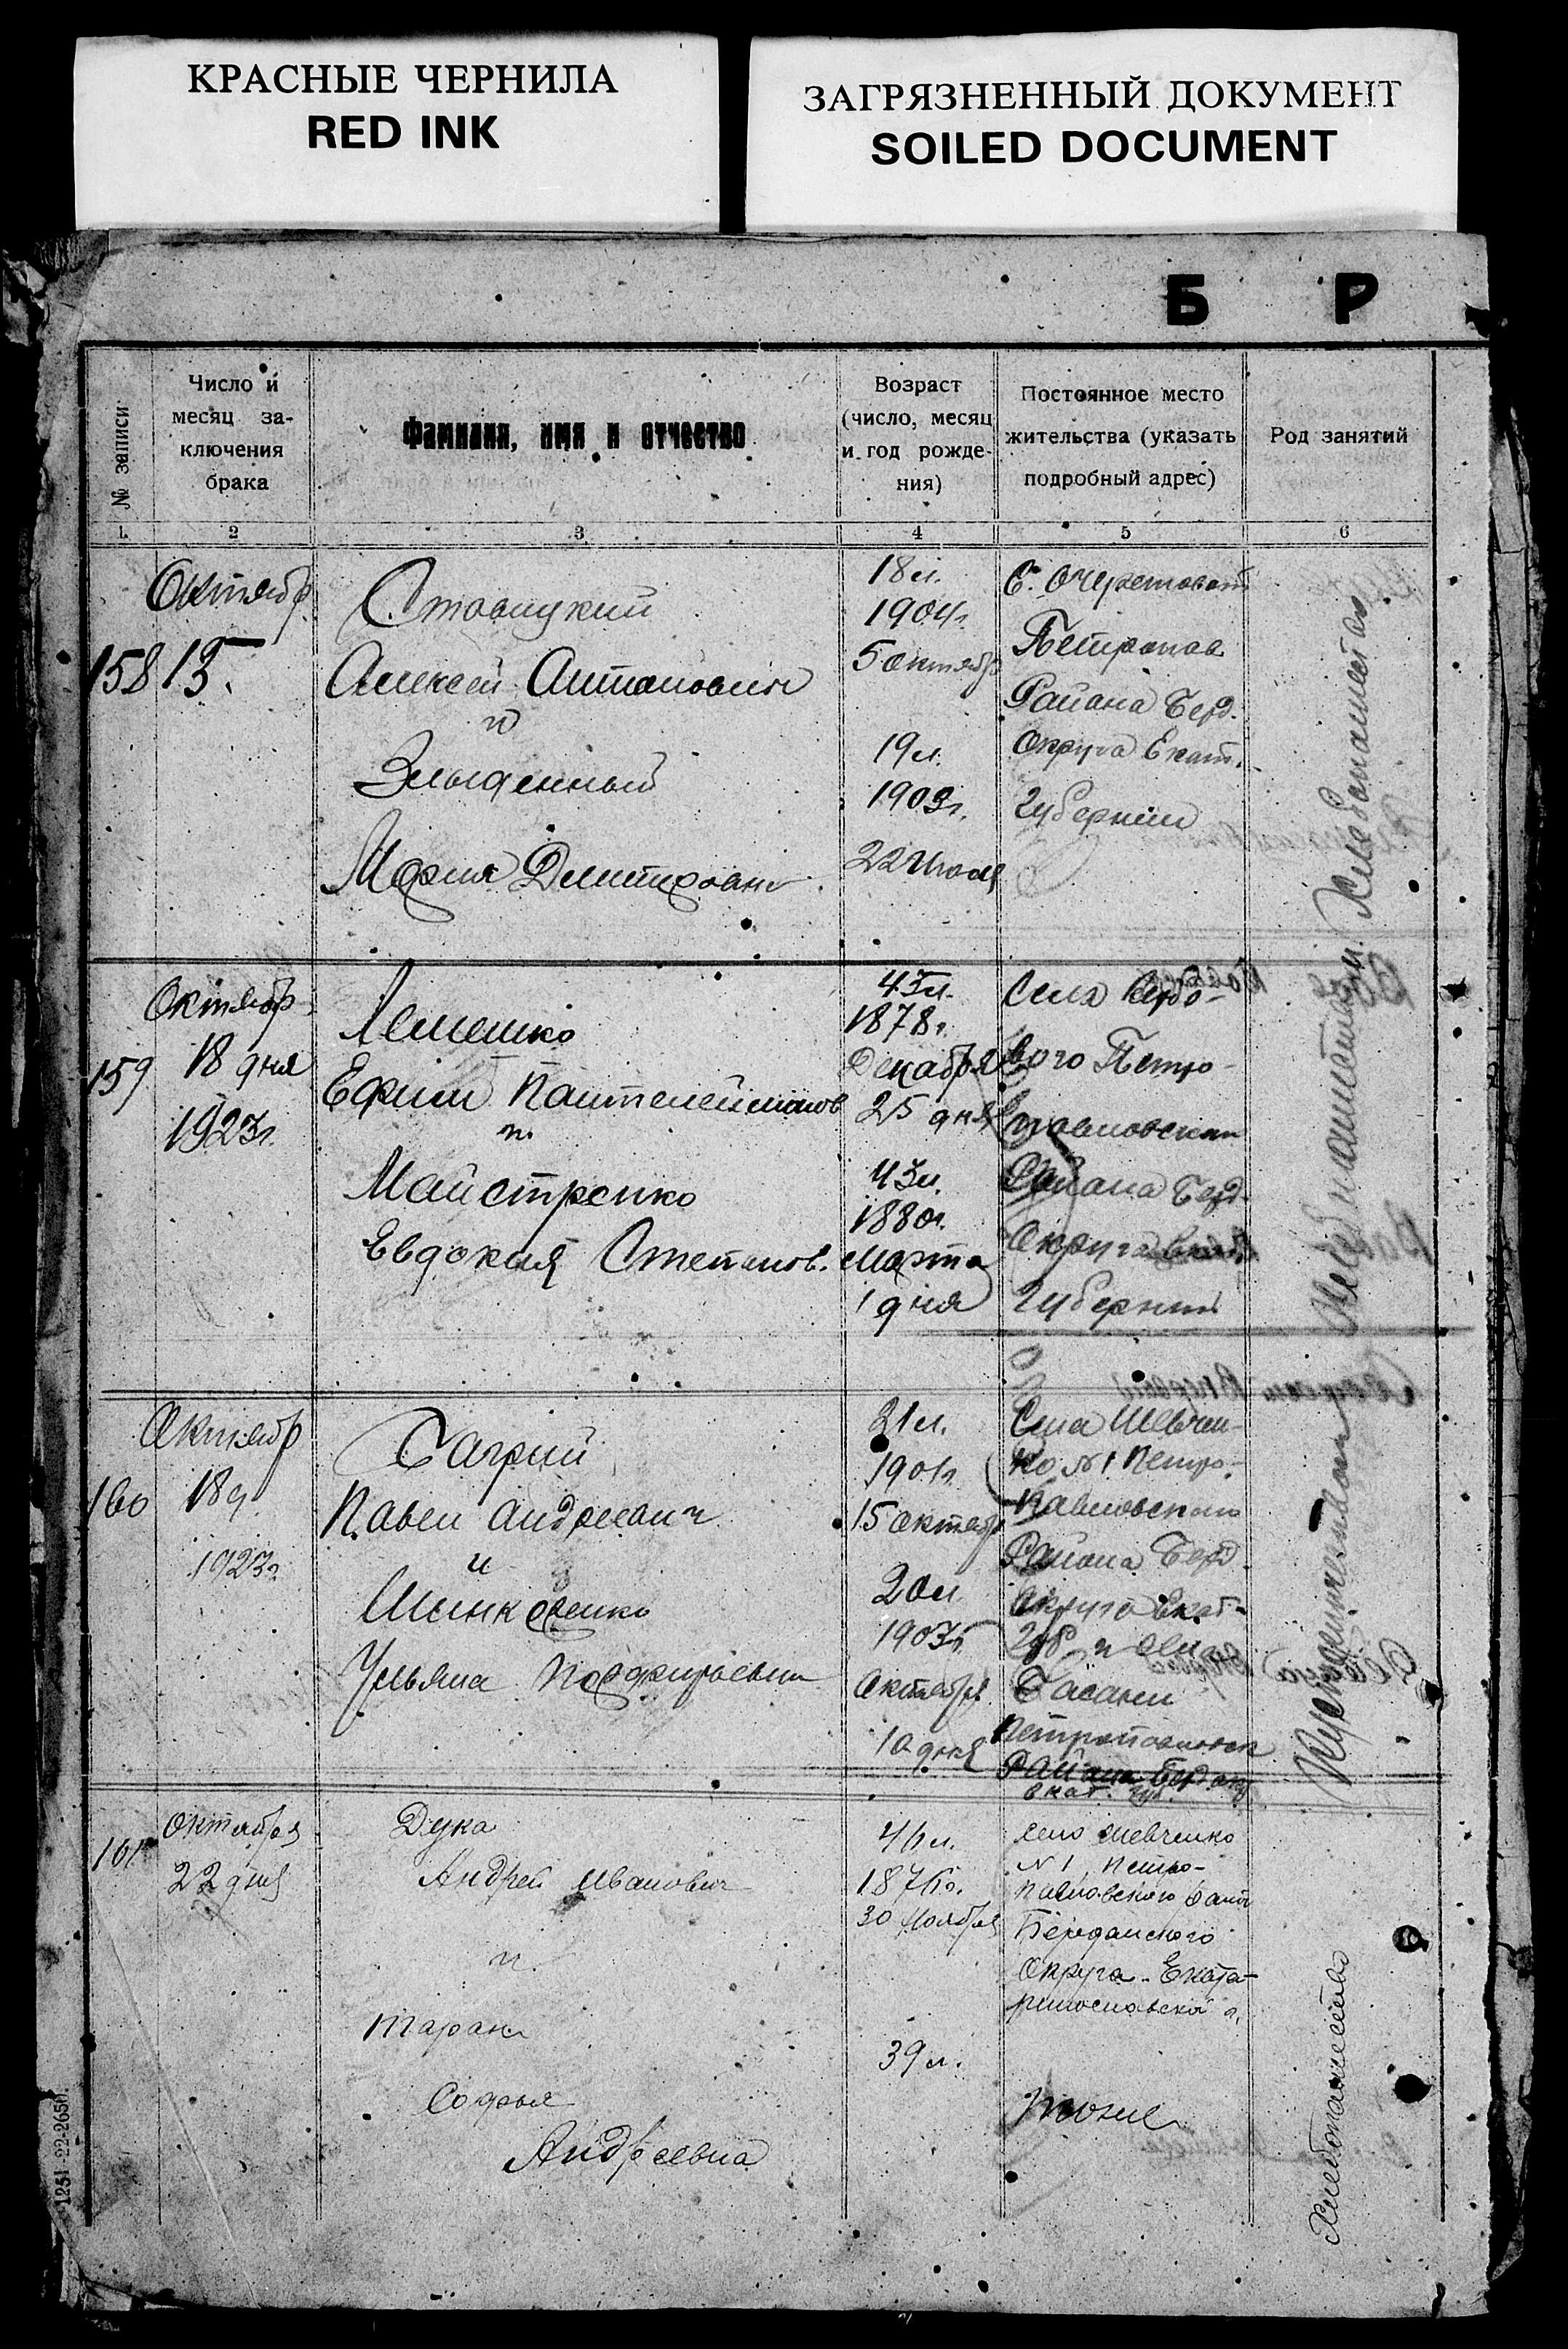 КРАСНЫЕ ЧЕРНИЛА
RED INK
ЗАГРЯЗНЕННЫЙ ДОКУМЕНТ
SOILED DOCUMENT
Б Р
№ записи
Число и
месяц за-
ключения
брака
Фамилия, имя и отчество
Возраст
(число, месяц
и год рожде-
ния)
Постоянное место
жительства (указать
подробный адрес)
Род занятий
1. 2 3 4 5 6
158
Октябр
15.
Алексей Антонович
и
Мария Дмитровн
18 л.
1904 г.
5 октябр
19 л.
1903 г.
22 Июля
С.
Петропав
Района Берд.
Округа Екат.
Губернии
Хлебопашество
159
Октябр
18 дня
1923 г.
Лемешко
Ефим Пантелеймонов
и
Майстренко
Евдокия Степанов.
43 л.
1878 г.
Декабря
25 дня
43 л.
1880 г.
Марта
1 дня
Села Вербо-
вого Петро-
павловскаго
Района Берд.
Округа
Губернии
Хлебопашеством
160
Октябр
18 д.
1923 г.
Багрий
Павел Андреевич
и
Ульяна Порфирьевна
21 л.
1901 г.
15 октябр
20 л.
1903 г.
Октября
10 дня
Села Шевчен-
ко № 1 Петро-
Павловского
Района Берд.
Округа Екат.
Губ и сел
Басани
Петропавловск
Района Берд окр
Екат. губ.
161
Октября
22 дня
Дука
Андрей Иванович
и
Таран
Софья
Андреевна
46 л.
1876 г.
30 Ноября
39 л.
село Шевченко
№ 1 Петро-
павловского Района
Бердянского
Округа Еката-
ринославской г.
тоже
Хлебопашество
1251-22-2650.